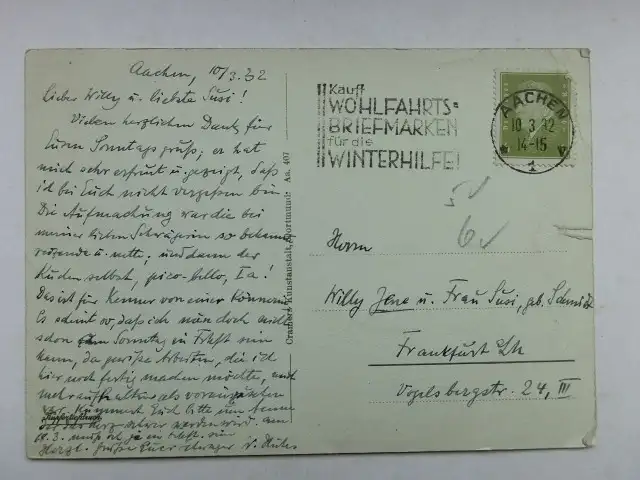 Aachen, 10/3.32
Lieber Willy u. liebste Susi!
Vielen herzlichen Dank für
Euren Sonntagsgruß; er hat
mich sehr erfreut u. gezeigt, daß
ich bei Euch nicht vergessen bin.
Die Aufmachung war die bei
meiner lieben Schwägerin so bekannt
reizende u. nette, und dann der
Kuchen selbst, pico-bello, Ia!
Das ist für Kenner von einer Könnerin.
Es scheint so, daß ich nun doch nicht
schon am Sonntag in Frkft sein
kann, da gewisse Arbeiten, die ich
hier noch fertig machen möchte, mich
mehr aufhalten als
Kümmert Euch bitte um
das Herz schwer werden wird. am
3. muß ich ja in Frkft. sein
Herzl. Grüße Euer Schwager
Cramers Kunstanstalt, Dortmund Aa. 407
Kauft
WOHLFAHRTS-
BRIEFMARKEN
für die
WINTERHILFE!
AACHEN
10.3.32
14-15
1
Herrn
Willy Jene u. Frau Susi, geb. Schmidt
Frankfurt
Vogelsbergstr. 24, III